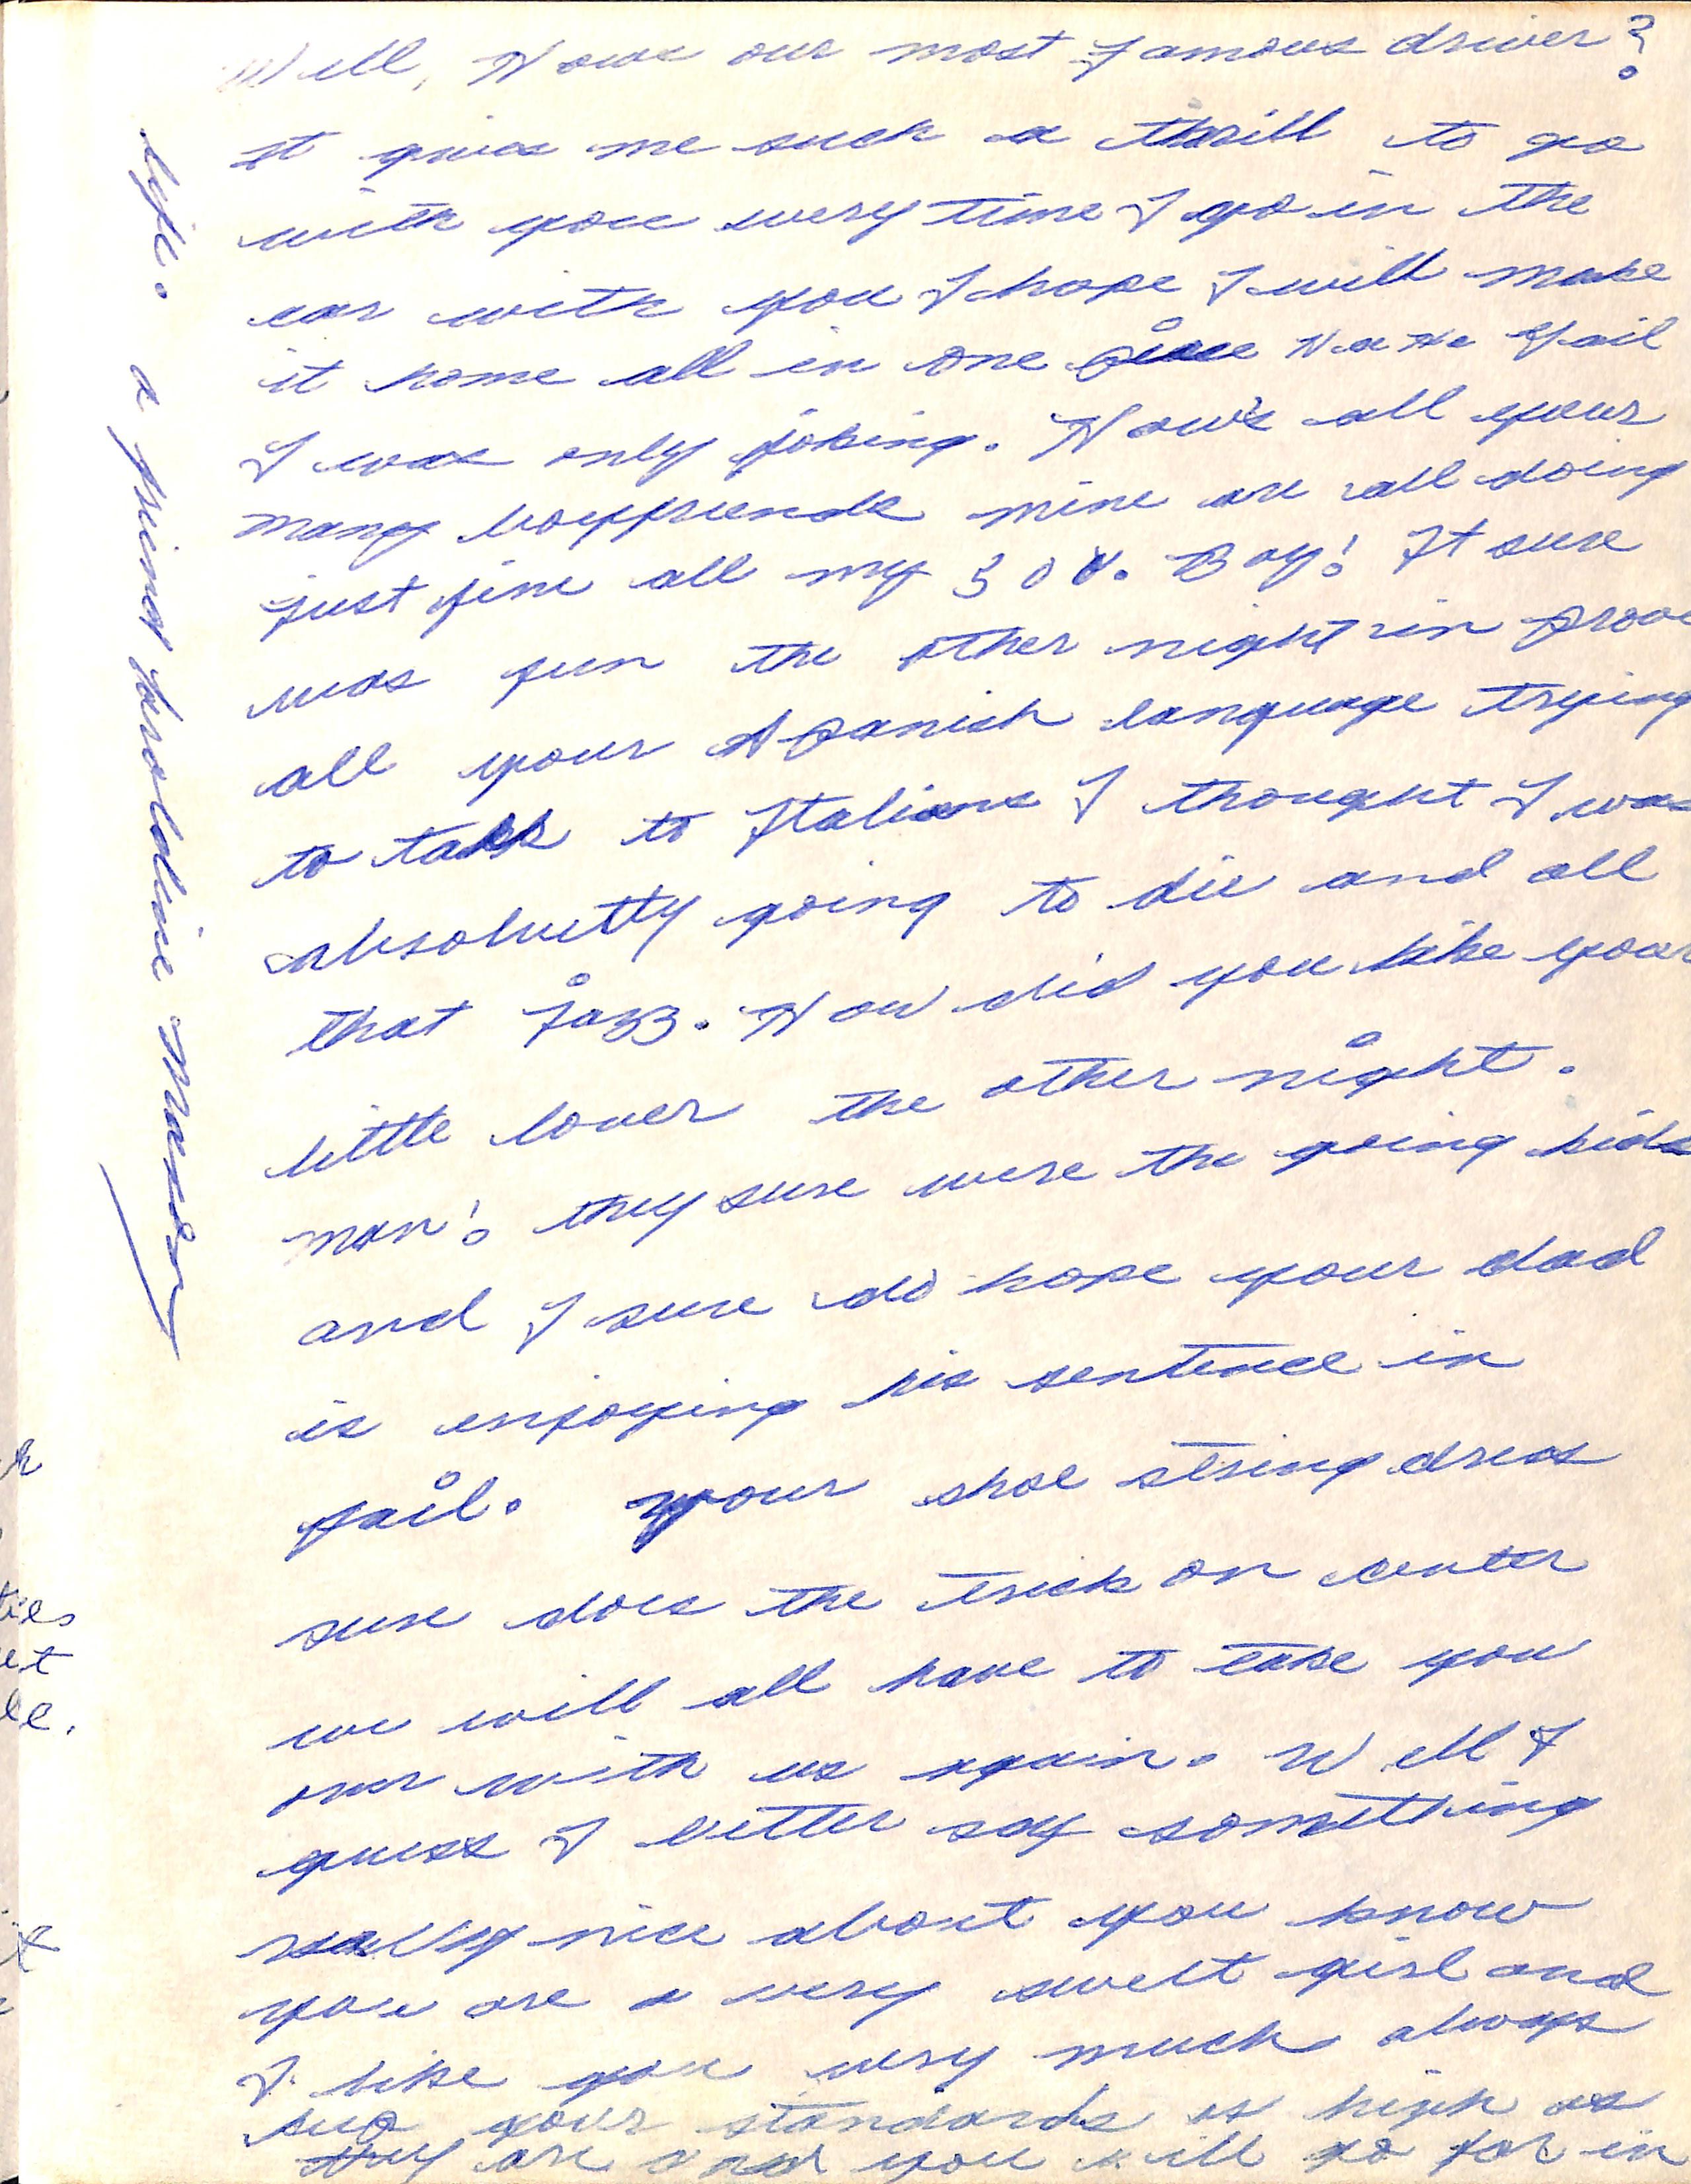 Well, Hows our most famous driver?
It gives me such a thrill to go
with you every time I go in the
car with you I hope I will make
it home all in one piece Ha Ha Gail
I was only joking. How's all your
many boyfriends mine are all doing
just fine all my 30. Boy! It sure
was fun the other night in Provo
all your Spanish language trying
to talk to Italians I thought I was
absolutty going to die and all
that jazz. How did you like your
little lover the other night.
man! they sure were the going kids
and I sure do hope your dad
is enjoying his sentence in
jail. your shoe string dress
sure does the trick on center
we will all have to take you
over with us again. Well I
guess I better say something
really nice about you know
you are a very sweet girl and
I like you very much always
keep your standards as high as
they are and you will go far in
life. a friend Nancy
et